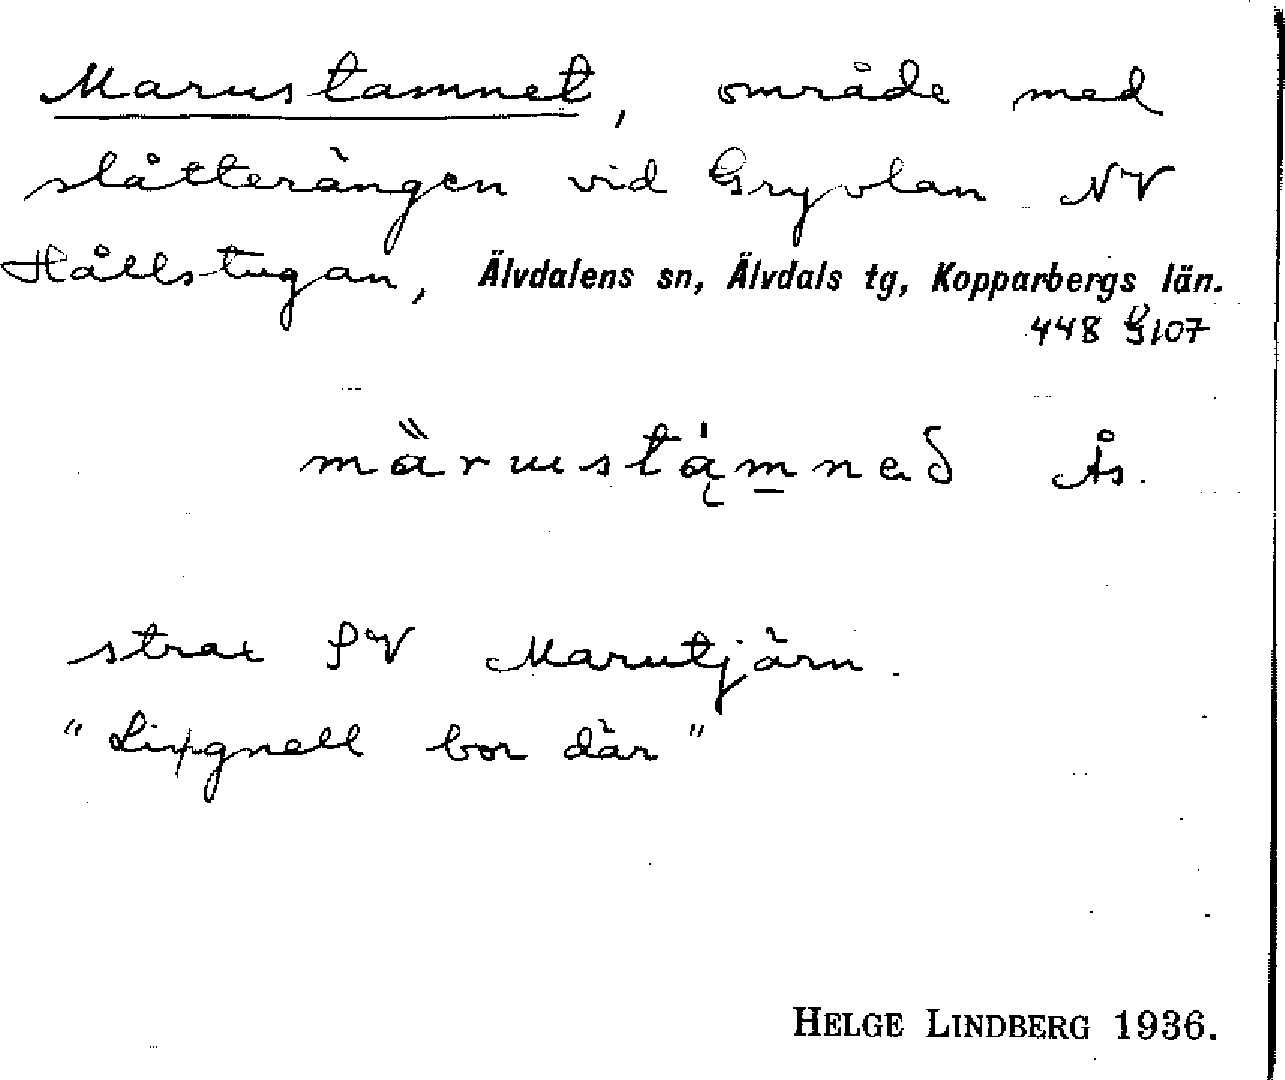 Marustamnet, område med
slåtterängen vid Gryvlan NV
Hållstugan, Älvdalens sn, Älvdals tg, Kopparbergs län.
448 107
märustámnað Ås.
strax SV Marutjärn.
"Lingnell bor där"
HELGE LINDBERG 1936.